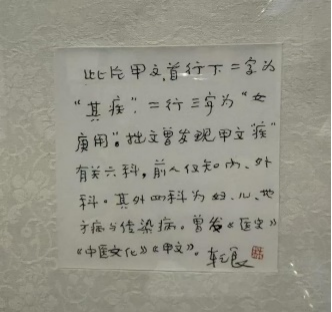 此片甲文首行下二字为
“其疾”. 二行三字为“女
庚用”。拙文曾发现甲文“疾”
有关六科，前人仅知内、外
科。其外四科为妇、儿、地
方病与传染病。曾发《医史》
《中医文化》《甲文》。